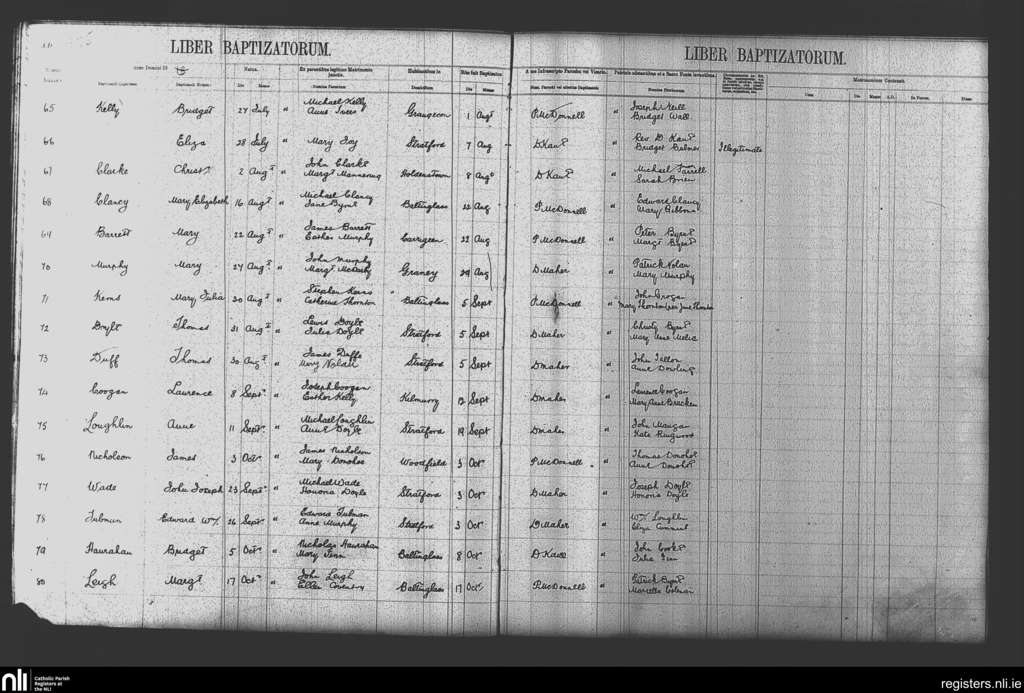 LIBER BAPTIZATORUM. LIBER BAPTIZATORUM.
Anno Domini 18 Natus. Ex parentibus legitimo Matrimonio junctis. Habitantibus in Rite fuit Baptizatus A me Infrascripto Parocho vel Vicario. Patrinis adstantibus et e Sacro Fonte levantibus. Matrimonium Contraxit
Die Mense Domicilium Die Mense Nomina Patrinorum. Cum Die. Mense A.D. In Paroec. Dioec.
65 Kelly Bridget 27 July " Michael Kelly Grangecon 1 Augt P. McDonnell " Joseph Neill
Anne Bridget Wall
66 Eliza 28 July " Mary Stratford 7 Aug D Kane " Rev D Kane Illegitimate
Bridget
67 Clarke 2 Augt " John Clarke Holdenstown 8 Aug D Kane " Michael Farrell
Margt Sarah Brien
68 Clancy Mary Elizabeth 16 Augt " Michael Clancy Baltinglass 22 Aug P. McDonnell " Edward Clancy
Jane Byrne Mary Gibbons
69 Barrett Mary 22 Augt " James Barrett Carrigeen 22 Aug P McDonnell " Peter Byrne
Esther Murphy Margt Byrne
70 Murphy Mary 27 Augt " John Murphy Graney 29 Aug D Maher " Patrick Nolan
Margt Mary Murphy
71 Mary Julia 20 Augt " Stephen Baltinglass 5 Sept P. McDonnell " John Grogan
Catherine Thornton Mary Thornton
72 Doyle Thomas 31 Augt " Lewis Doyle Stratford 5 Sept D Maher " Christy Byrne
Julia Doyle Mary Anne Melia
73 Duff Thomas 30 Augt " James Duffe Stratford 5 Sept D Maher " John Fallon
Mary Nolan Anne Dowling
74 Coogan Laurence 8 Sept. " Joseph Coogan Kilmurry 12 Sept D Maher " Laurence Coogan
Esther Kelly Mary Anne Bracken
75 Loughlin Anne 11 Sept. " Michael Loughlin Stratford 19 Sept D Maher " John Mangan
Anne Doyle Kate Ringwood
76 Nicholson James 3 Oct. " James Nicholson Woodfield 3 Oct P. McDonnell " Thomas Donohoe
Mary Donohoe Anne Donohoe
77 Wade John Joseph 23 Sept. " Michael Wade Stratford 3 Oct D Maher " Joseph Doyle
Honora Doyle Honora Doyle
78 Tubman Edward Wm 26 Sept. " Edward Tubman Stratford 3 Oct D Maher " Wm Loughlin
Anne Murphy Eliza
79 Hanrahan Bridget 5 Oct. " Nicholas Hanrahan Baltinglass 8 Oct D Kane " John Cooke
Mary Finn Julia Finn
80 Leigh Margt 17 Oct. " John Leigh Baltinglass 17 Oct. P. McDonnell " Patrick Byrne
Ellen Coventry Marcella Coleman
nli Catholic Parish Registers at the NLI
registers.nli.ie